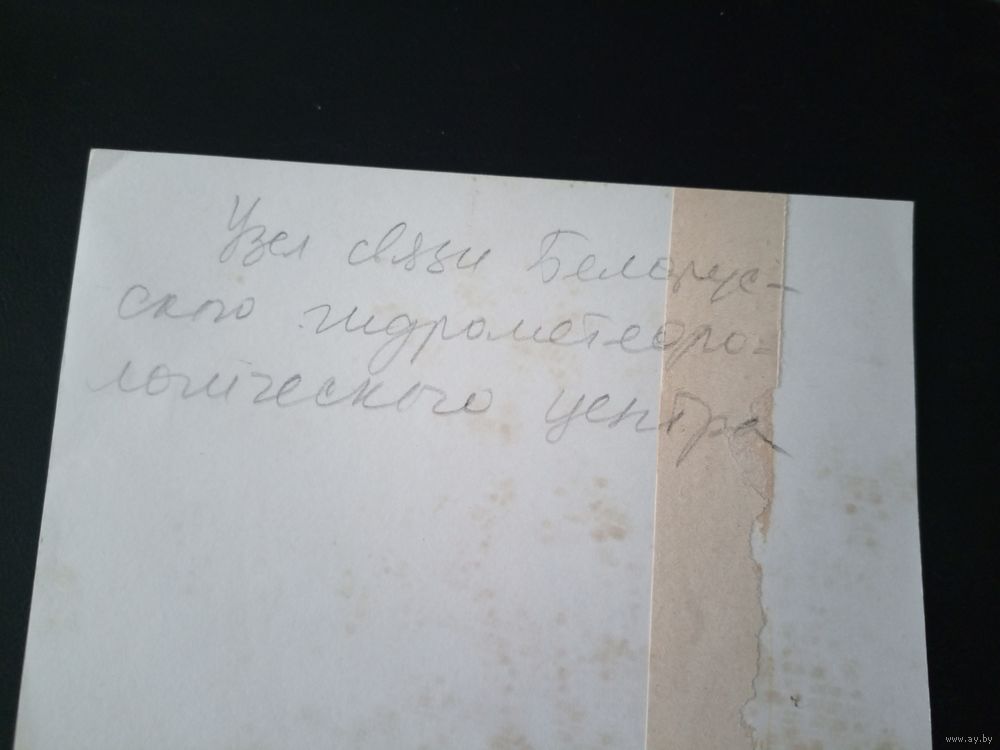 Узел связи Белорус-
ского гидрометеоро-
логического центра
www.ay.by